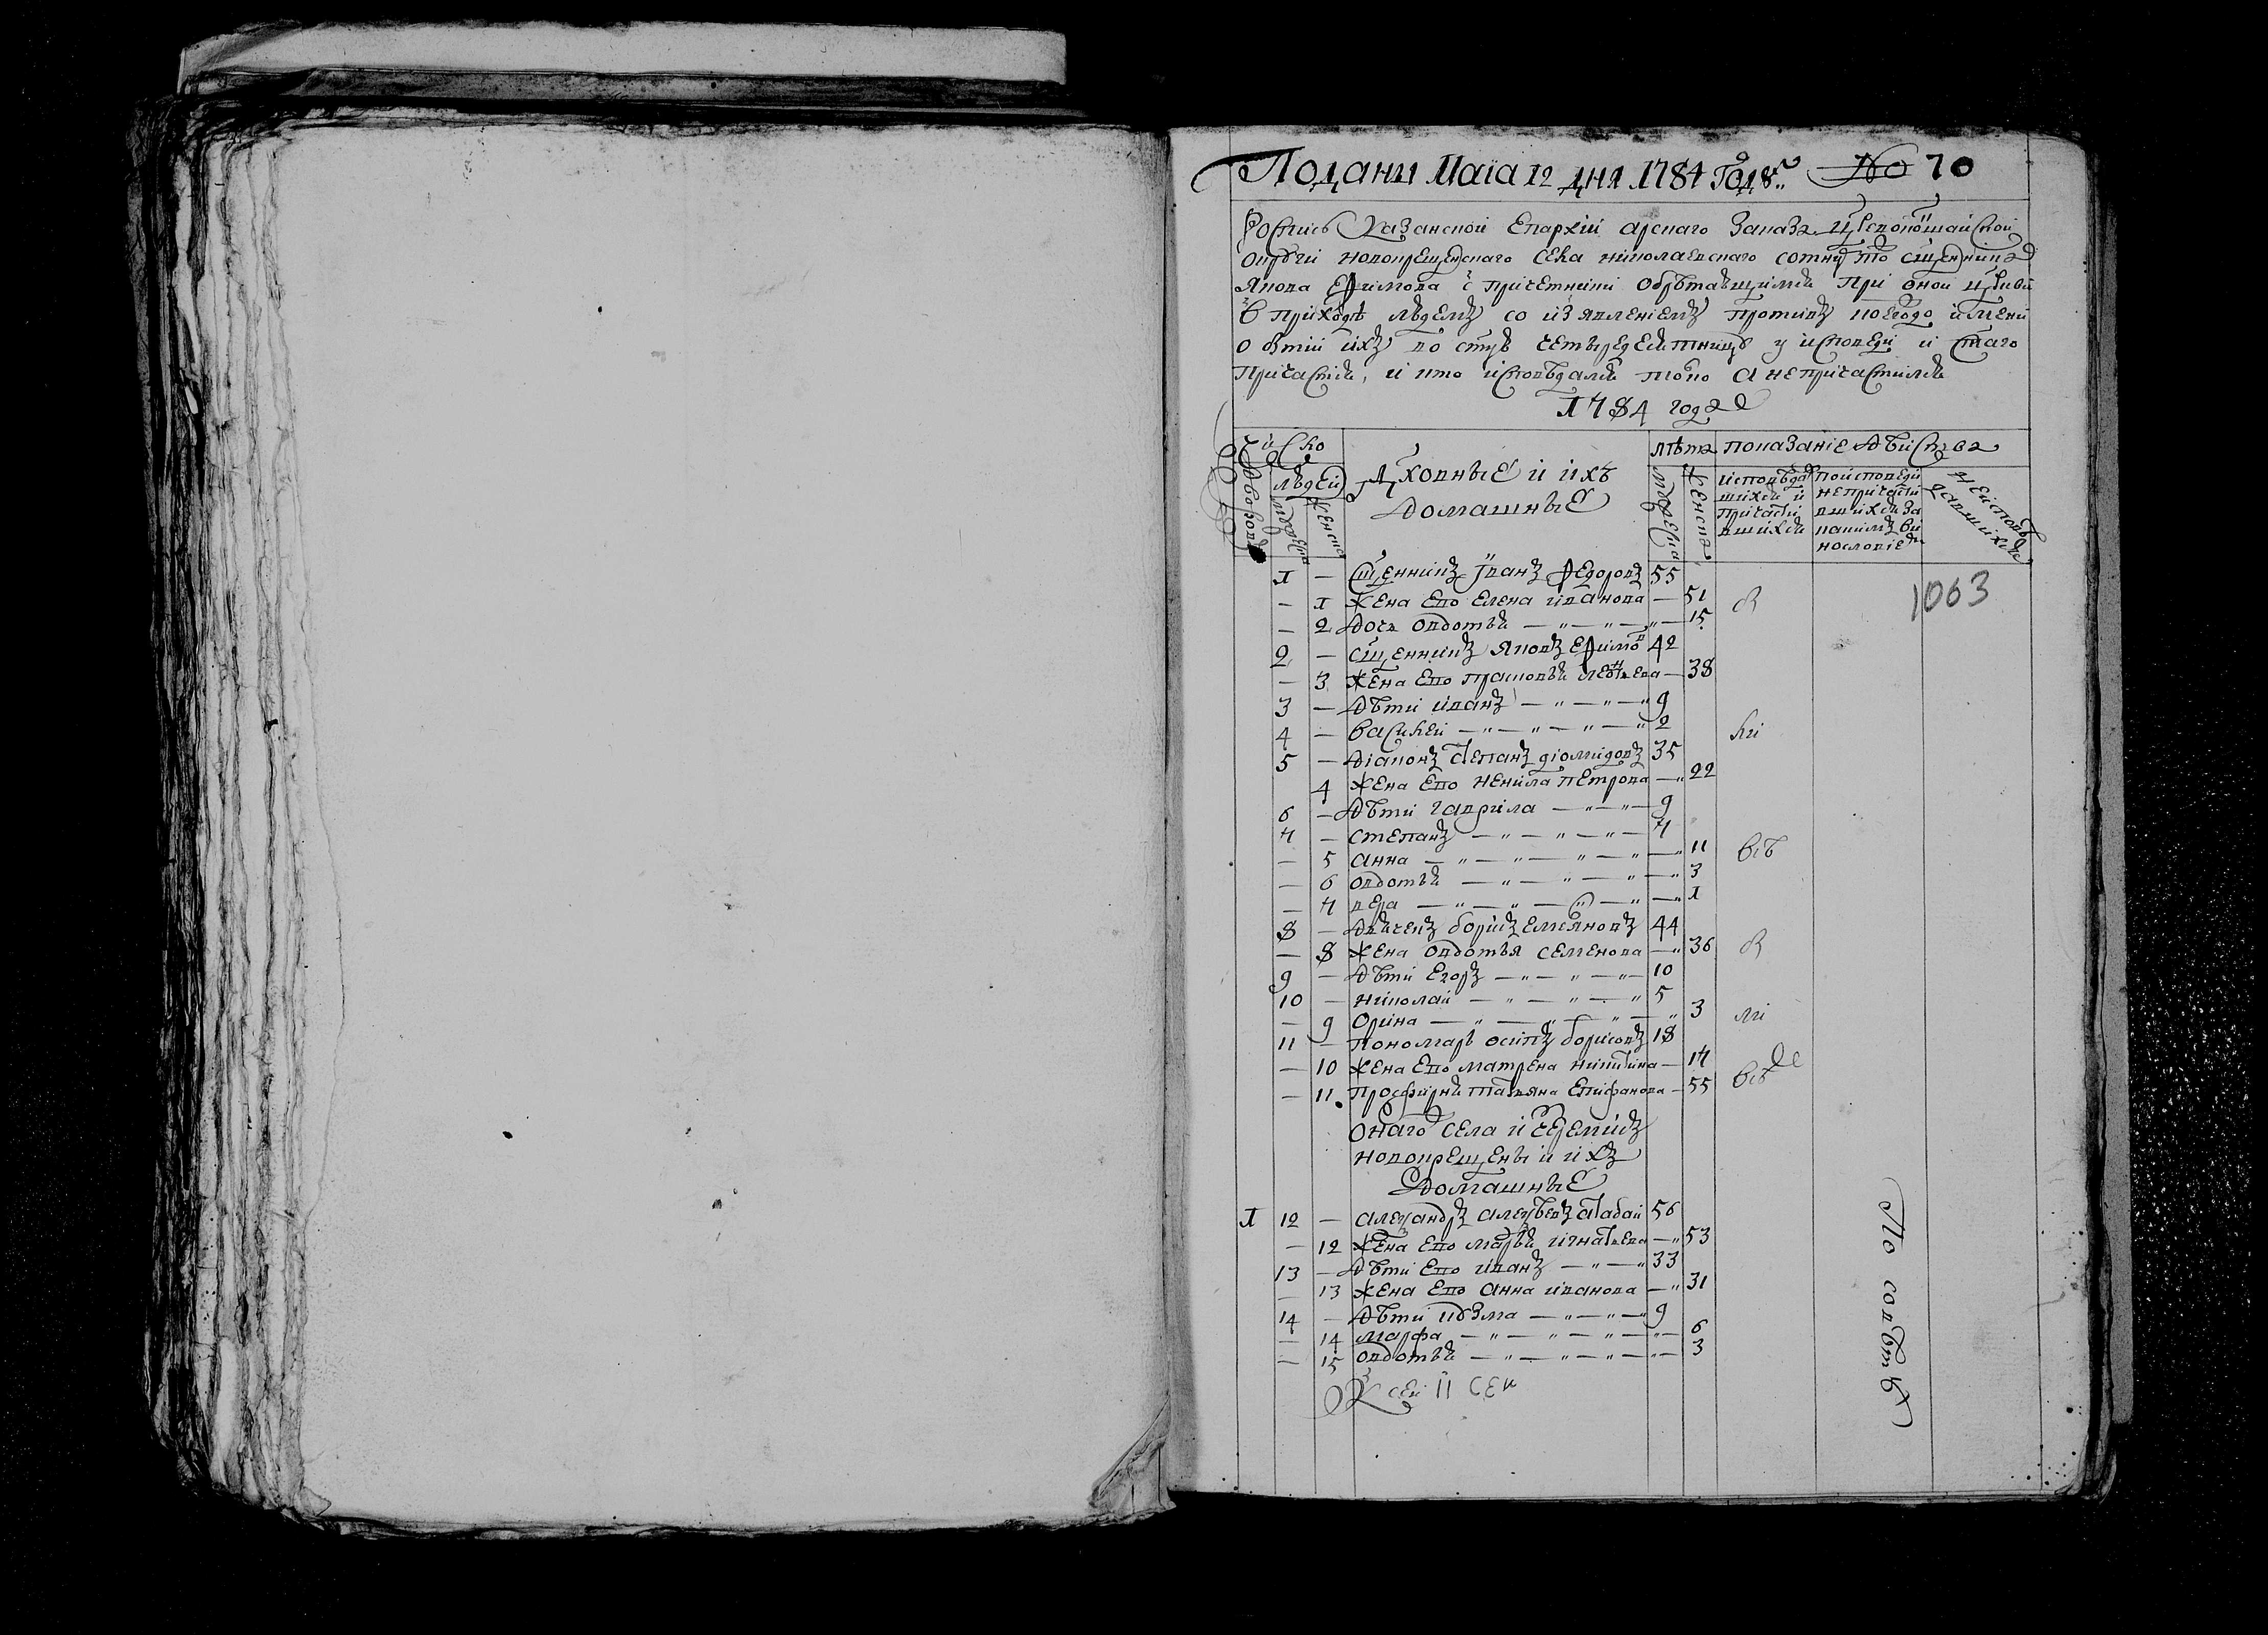 Поданы Маїа 12 дня 1784 Году № 70
Роспись Казанской Епархїи Арскаго Заказа Цревококшайской
округи новокрещенскаго села николаевскаго сотнур то сщенника
Якова Ефимова с причетники обрѣтающимся при оной цркви
в приходѣ людемъ со изъявленїемъ противъ коегодо имени
о бытїи ихъ во стую четыредесятницу у исповеди и стаго
Причастїя, и кто исповѣдался токмо а непричастился
1784 года
Чи Сло
Дворовъ
людей
мужеска
женска
Духовные и ихъ
домашные
лѣта
мужеска
женска
показанїе дѣйства
исповѣда
шихся и
причасти
вшихся
поисповеди
непричасти
вшихся за
какимъ ви
нословїе
неисповѣ
давшихся
1 — Сщенникъ Іванъ Федоровъ 55
— 1 жена Ево Елена иванова — 51
— 2 дочь овдотья — 15
2 — сщенникъ Яковъ Ефимов 42
— 3 жена Ево прасковья леонтьева — 38
3 — дѣти иванъ — 9
4 — василей — 2
5 — дїаконъ степанъ дїомидовъ 35
4 жена Ево ненила петрова — 22
6 — дѣти гаврила — 9
7 — степанъ — 7
— 5 анна — 11
— 6 овдотья — 3
— 7 вера — 1
8 — дьячекъ борисъ емельяновъ 44
— 8 жена овдотья семенова — 36
9 — дѣти егоръ — 10
10 — николай — 5
— 9 орина — 3
11 — пономарь осипъ борисовъ 18
— 10 жена Ево матрена никитина — 17
— 11 просфирня татьяна епифанова — 55
1063
Онаго села и черемисъ
новокрещены и ихъ
домашные
1 12 — александръ алексѣевъ атабай 56
— 12 жена Ево марья игнатьева — 53
13 — дѣти Ево иванъ — 33
— 13 жена Ево анна иванова — 31
14 — дѣти козма — 9
— 14 марфа — 6
— 15 овдотья — 3
К сей
По совѣту